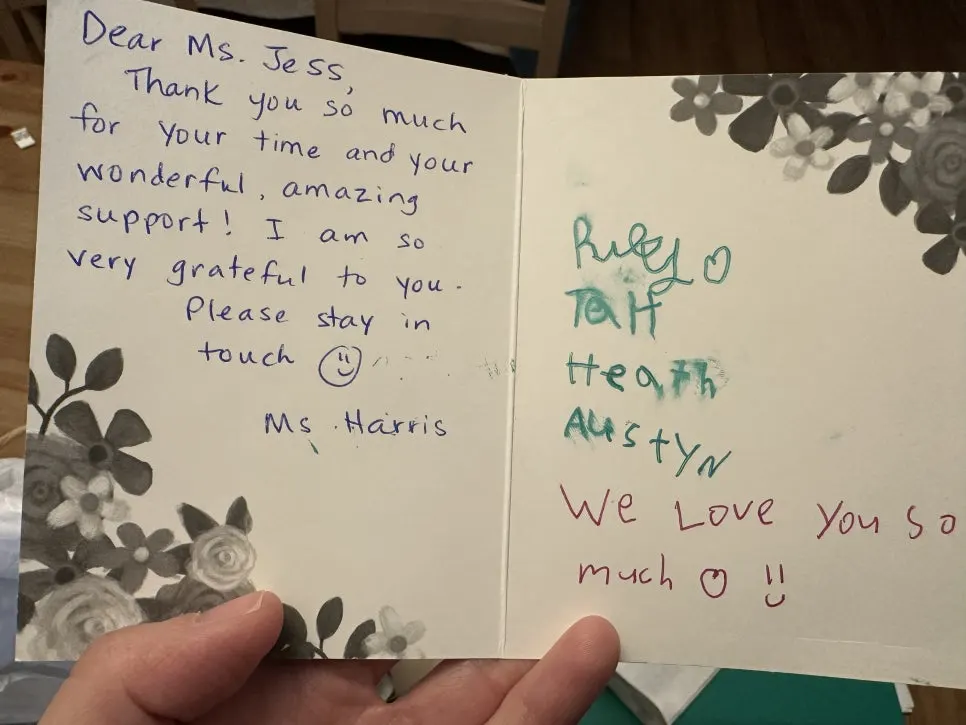 Dear Ms. Jess,
Thank you so much
for your time and your
wonderful, amazing
support! I am so
very grateful to you.
Please stay in
touch
Ms. Harris
Riley
Heath
Austyn
We Love you so
much